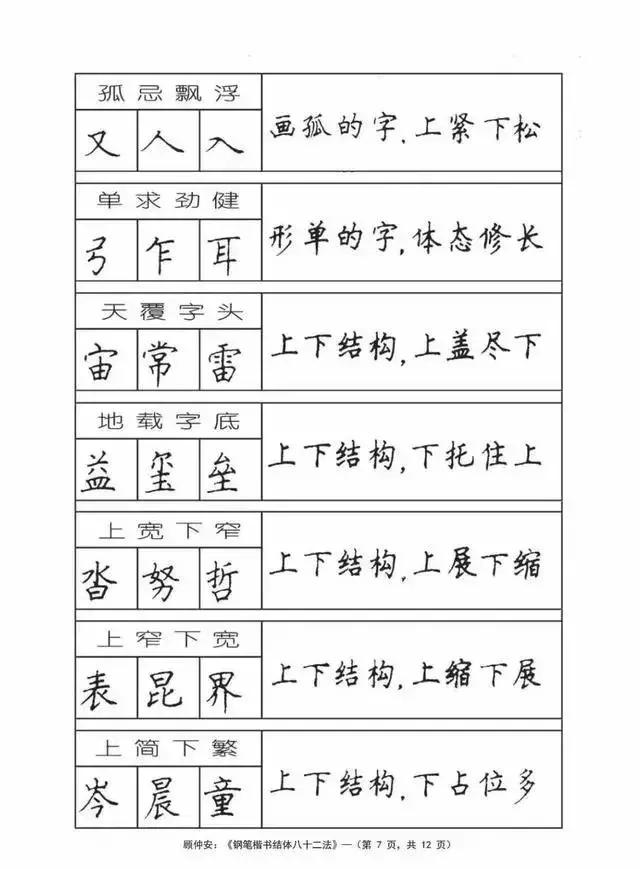 孤忌飘浮
又 人 入
画孤的字,上紧下松
单求劲健
弓 乍 耳
形单的字,体态修长
天覆字头
宙 常 雷
上下结构,上盖尽下
地载字底
益 玺 垒
上下结构,下托住上
上宽下窄
沓 努 哲
上下结构,上展下缩
上窄下宽
表 昆 界
上下结构,上缩下展
上简下繁
岑 晨 童
上下结构,下占位多
顾仲安:《钢笔楷书结体八十二法》—(第 7 页,共 12 页)